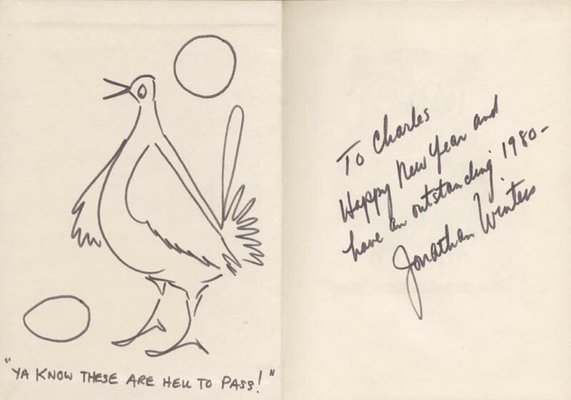 "YA KNOW THESE ARE HELL TO PASS!"
To Charles
Happy New Year and
have an outstanding 1980-
Jonathan Winters